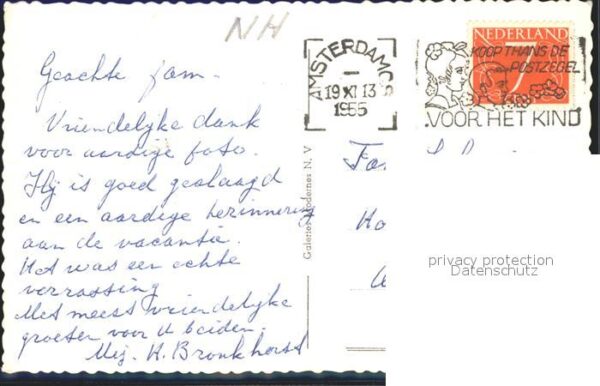 NH
Geachte fam.
Vriendelijke dank
voor aardige foto.
Hij is goed geslaagd
en een aardige herinnering
aan de vacantie.
Het was een echte
verrassing
Met meest vriendelijke
groeten voor U beiden.
Mej. H. Bronkhorst
Galeries Modernes N. V
AMSTERDAM C.S
19 XI 13
1955
NEDERLAND
7
KOOP THANS DE
POSTZEGEL
VOOR HET KIND
Fa
privacy protection
Datenschutz